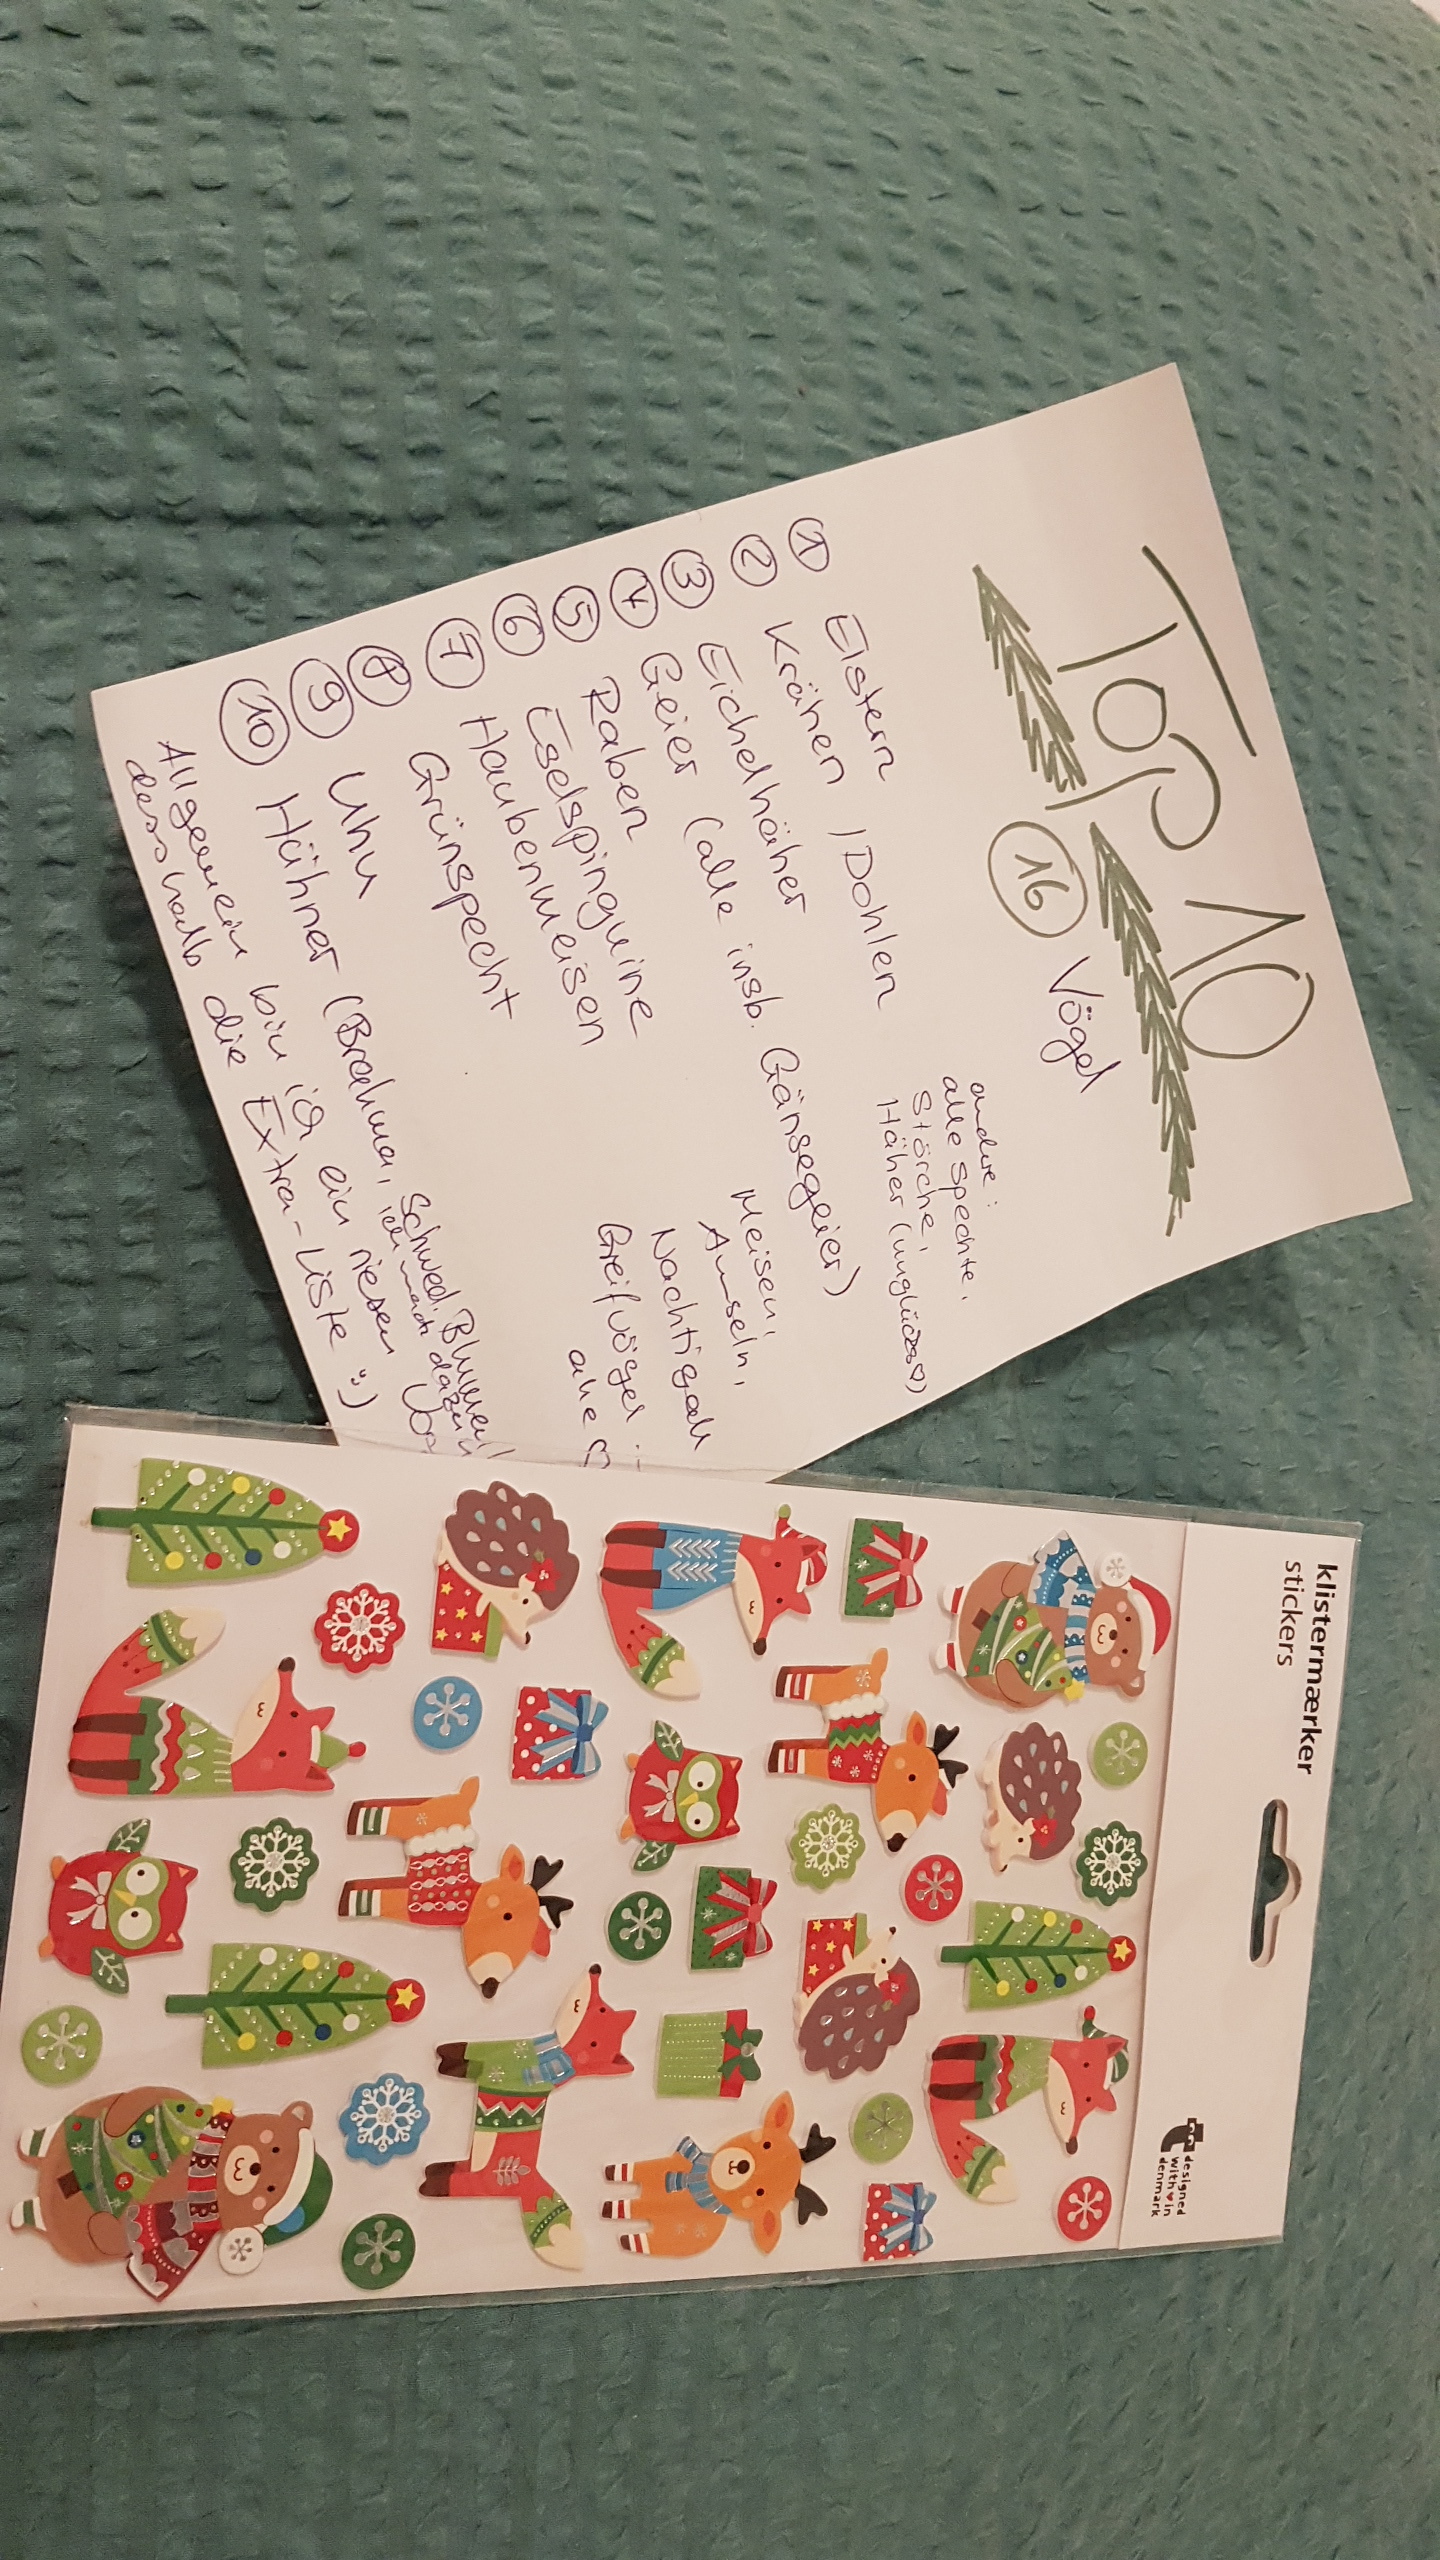 Top 10
16 Vögel
1 Elstern
2 Krähen / Dohlen
3 Eichelhäher
4 Geier (alle insb. Gänsegeier)
5 Raben
6 Eselspinguine
7 Haubenmeisen
8 Grünspecht
9 Uhu
10 Hühner (Brahma, Schwed. Blumen
Allgemein bin ich ein riesen
desshalb die Extra-Liste :)
andere:
alle Spechte,
Störche,
Häher
Meisen,
Amseln,
Nachtigall
Greifvögel
alle ♡
klistermærker
stickers
designed
with ♥ in
denmark